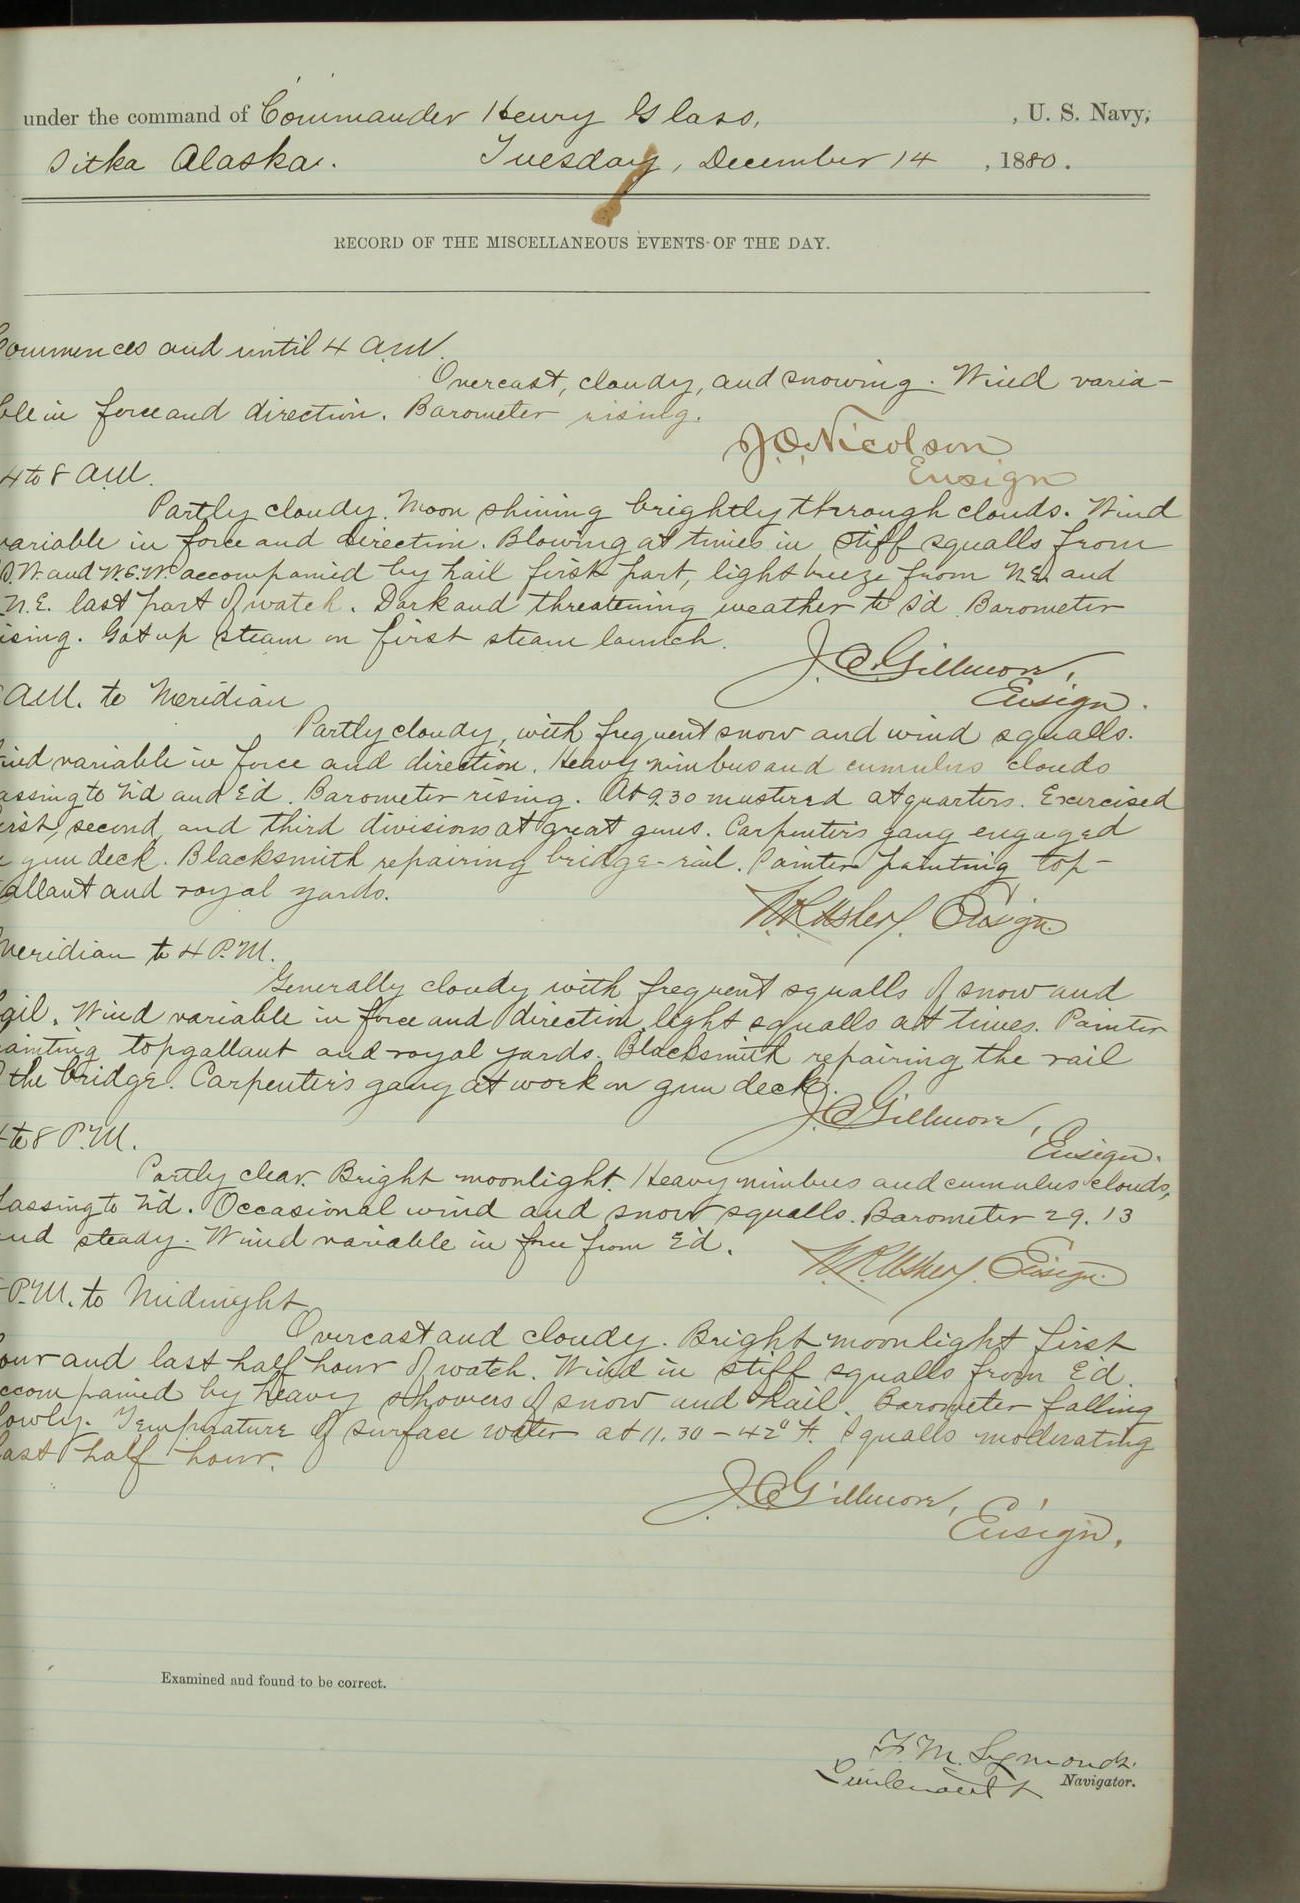 under the command of Commander Henry Glass, , U. S. Navy,
Sitka Alaska. Tuesday, December 14 , 1880.
RECORD OF THE MISCELLANEOUS EVENTS OF THE DAY.
Commences and until 4 A.M.
Overcast, cloudy, and snowing. Wind varia-
ble in force and direction. Barometer rising.
J.O. Nicolson
Ensign
4 to 8 A.M.
Partly cloudy. Moon shining brightly through clouds. Wind
variable in force and direction. Blowing at times in stiff squalls from
and accompanied by hail first part, light breeze from N.E. and
N.E. last part of watch. Dark and threatening weather to S'd. Barometer
ising. Got up steam on first steam launch.
J.C. Gillmore,
Ensign.
A.M. to Meridian
Partly cloudy, with frequent snow and wind squalls.
ind variable in force and direction. Heavy nimbus and cumulus clouds
assing to N'd and E'd. Barometer rising. At 9.30 mustered at quarters. Exercised
irst, second, and third divisions at great guns. Carpenter's gang engaged
gun deck. Blacksmith repairing bridge-rail. Painter painting top-
allant and royal yards.
N.R. Usher, Ensign.
Meridian to 4 P.M.
Generally cloudy with frequent squalls of snow and
ail. Wind variable in force and direction, light squalls at times. Painter
ainting topgallant and royal yards. Blacksmith repairing the rail
the bridge. Carpenter's gang at work on gun deck.
J.C. Gillmore,
Ensign.
4 to 8 P.M.
Partly clear. Bright moonlight. Heavy nimbus and cumulus clouds,
passing to N'd. Occasional wind and snow squalls. Barometer 29.13
and steady. Wind variable in force from E'd.
N.R. Usher, Ensign.
P.M. to Midnight
Overcast and cloudy. Bright moonlight first
our and last half hour of watch. Wind in stiff squalls from E'd.
ccompanied by heavy showers of snow and hail. Barometer falling
lowly. Temperature of surface water at 11.30 - 42° F. Squalls moderating
last half hour.
J.C. Gillmore,
Ensign.
Examined and found to be correct.
F. M. Symonds.
Lieutenant Navigator.